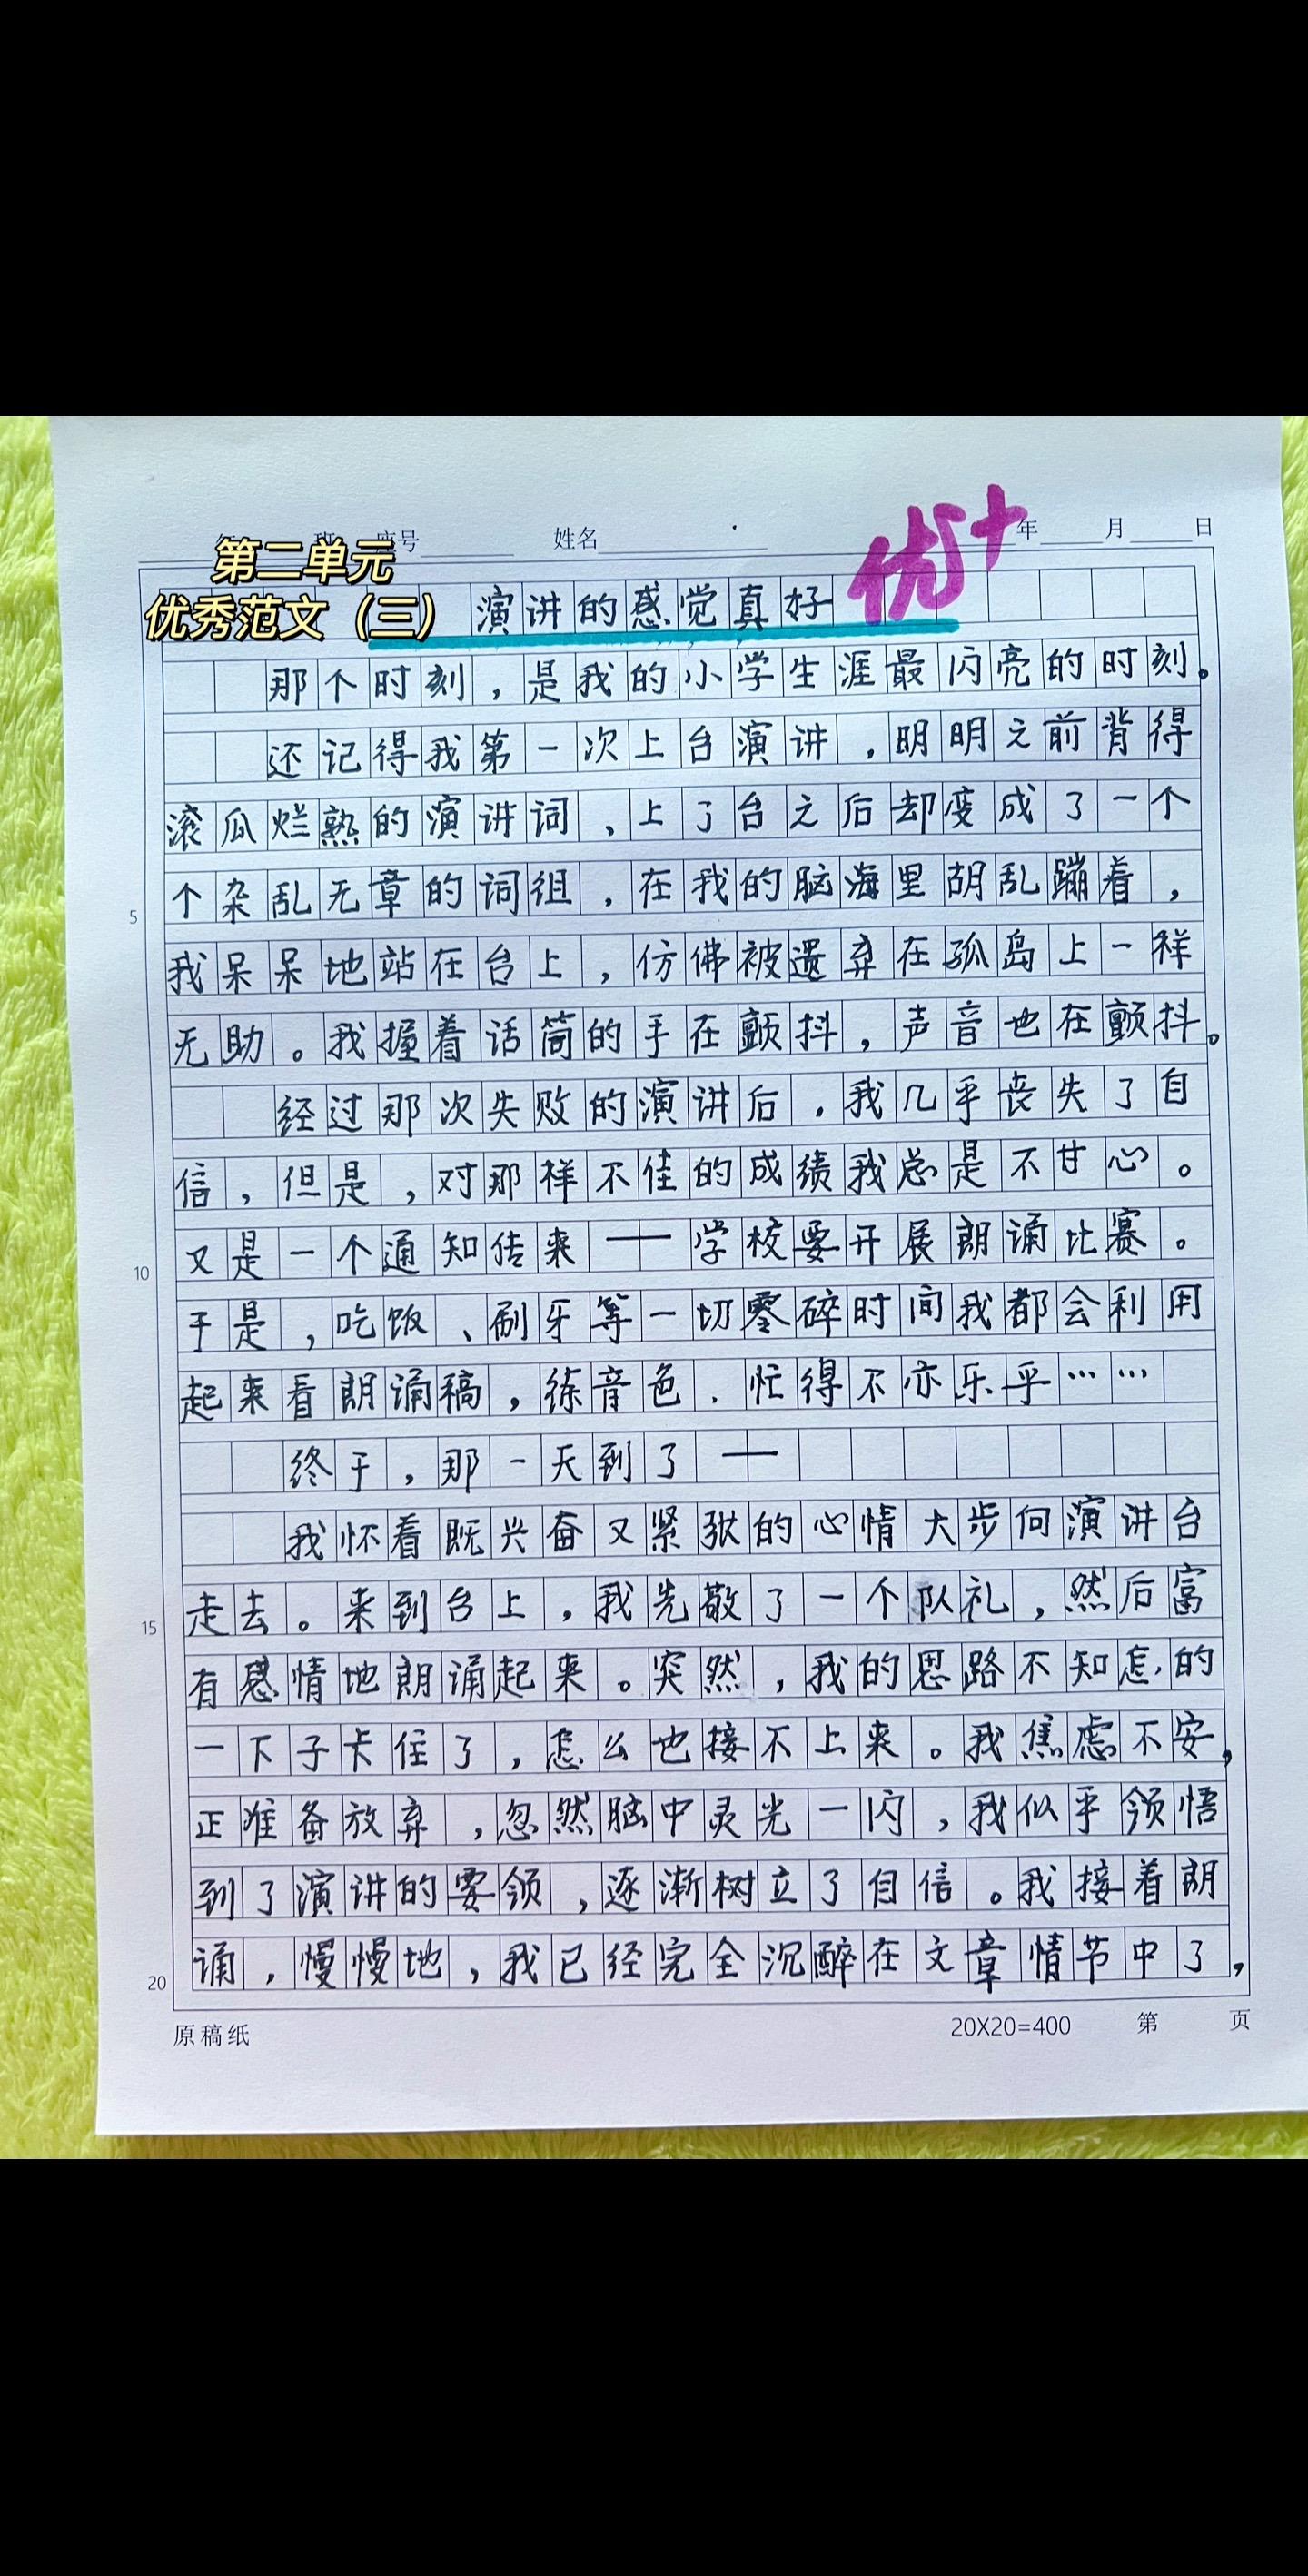 年 班 座号 姓名 年 月 日
优+
第二单元
优秀范文（三）
演讲的感觉真好
那个时刻，是我的小学生涯最闪亮的时刻。
还记得我第一次上台演讲，明明之前背得
滚瓜烂熟的演讲词，上了台之后却变成了一个
个杂乱无章的词组，在我的脑海里胡乱蹦着，
5
我呆呆地站在台上，仿佛被遗弃在孤岛上一样
无助。我握着话筒的手在颤抖，声音也在颤抖。
经过那次失败的演讲后，我几乎丧失了自
信，但是，对那样不佳的成绩我总是不甘心。
又是一个通知传来——学校要开展朗诵比赛。
10
于是，吃饭、刷牙等一切零碎时间我都会利用
起来看朗诵稿，练音色，忙得不亦乐乎……
终于，那一天到了——
我怀着既兴奋又紧张的心情大步向演讲台
走去。来到台上，我先敬了一个队礼，然后富
15
有感情地朗诵起来。突然，我的思路不知怎的
一下子卡住了，怎么也接不上来。我焦虑不安，
正准备放弃，忽然脑中灵光一闪，我似乎领悟
到了演讲的要领，逐渐树立了自信。我接着朗
诵，慢慢地，我已经完全沉醉在文章情节中了，
20
原稿纸 20X20=400 第 页